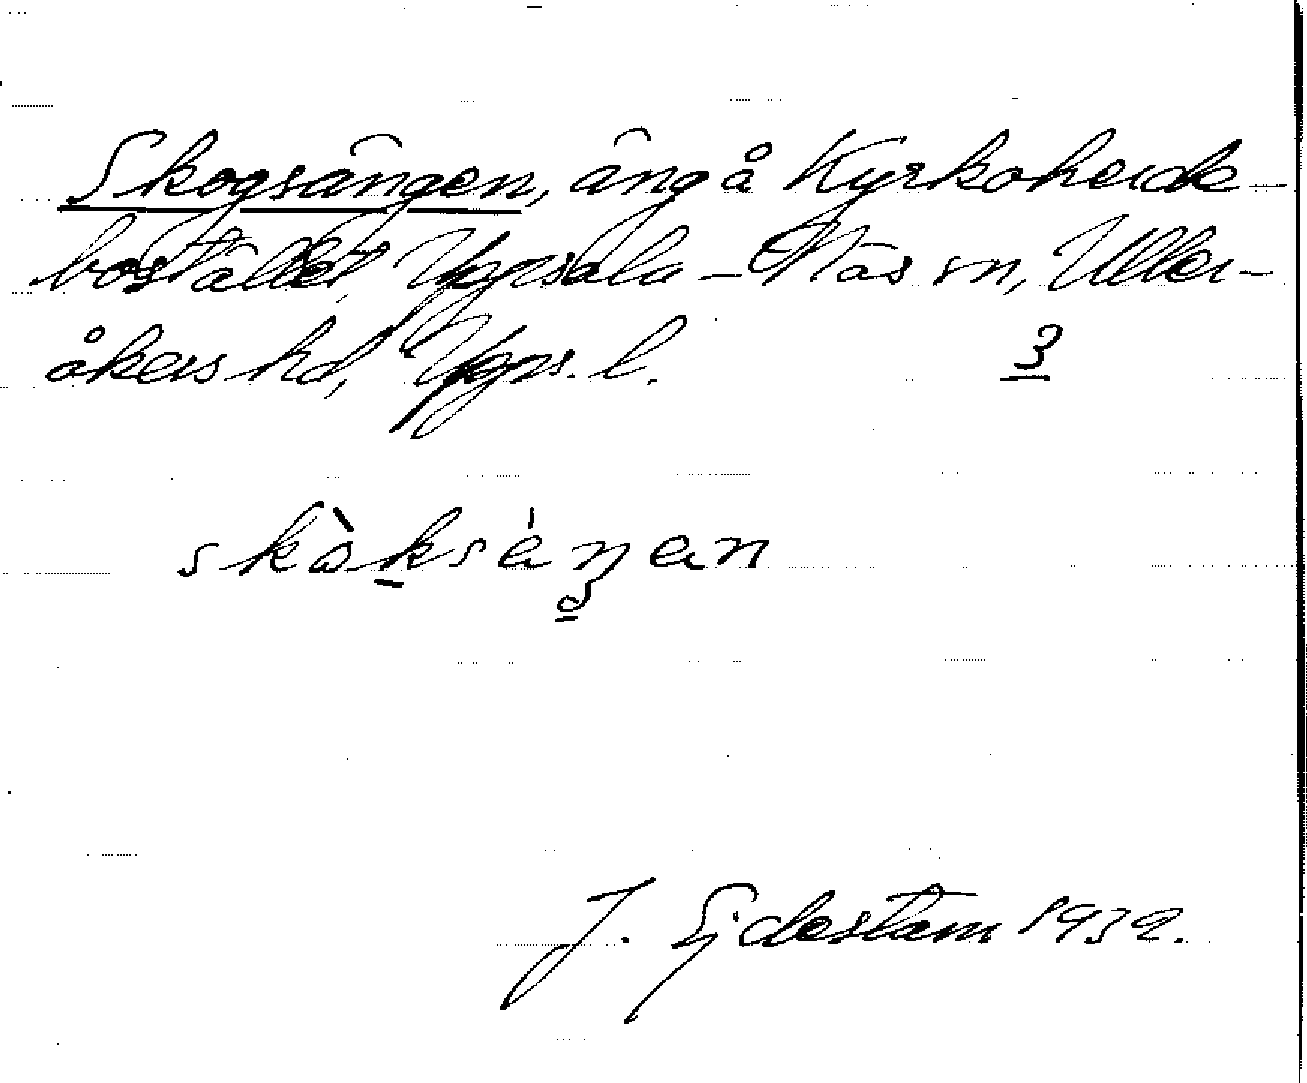 Skogsängen, äng å Kyrkoherde-
bostället, Uppsala-Näs sn, Uller-
åkers hd, Upps. l. 3
J. Ejdestam 1932.